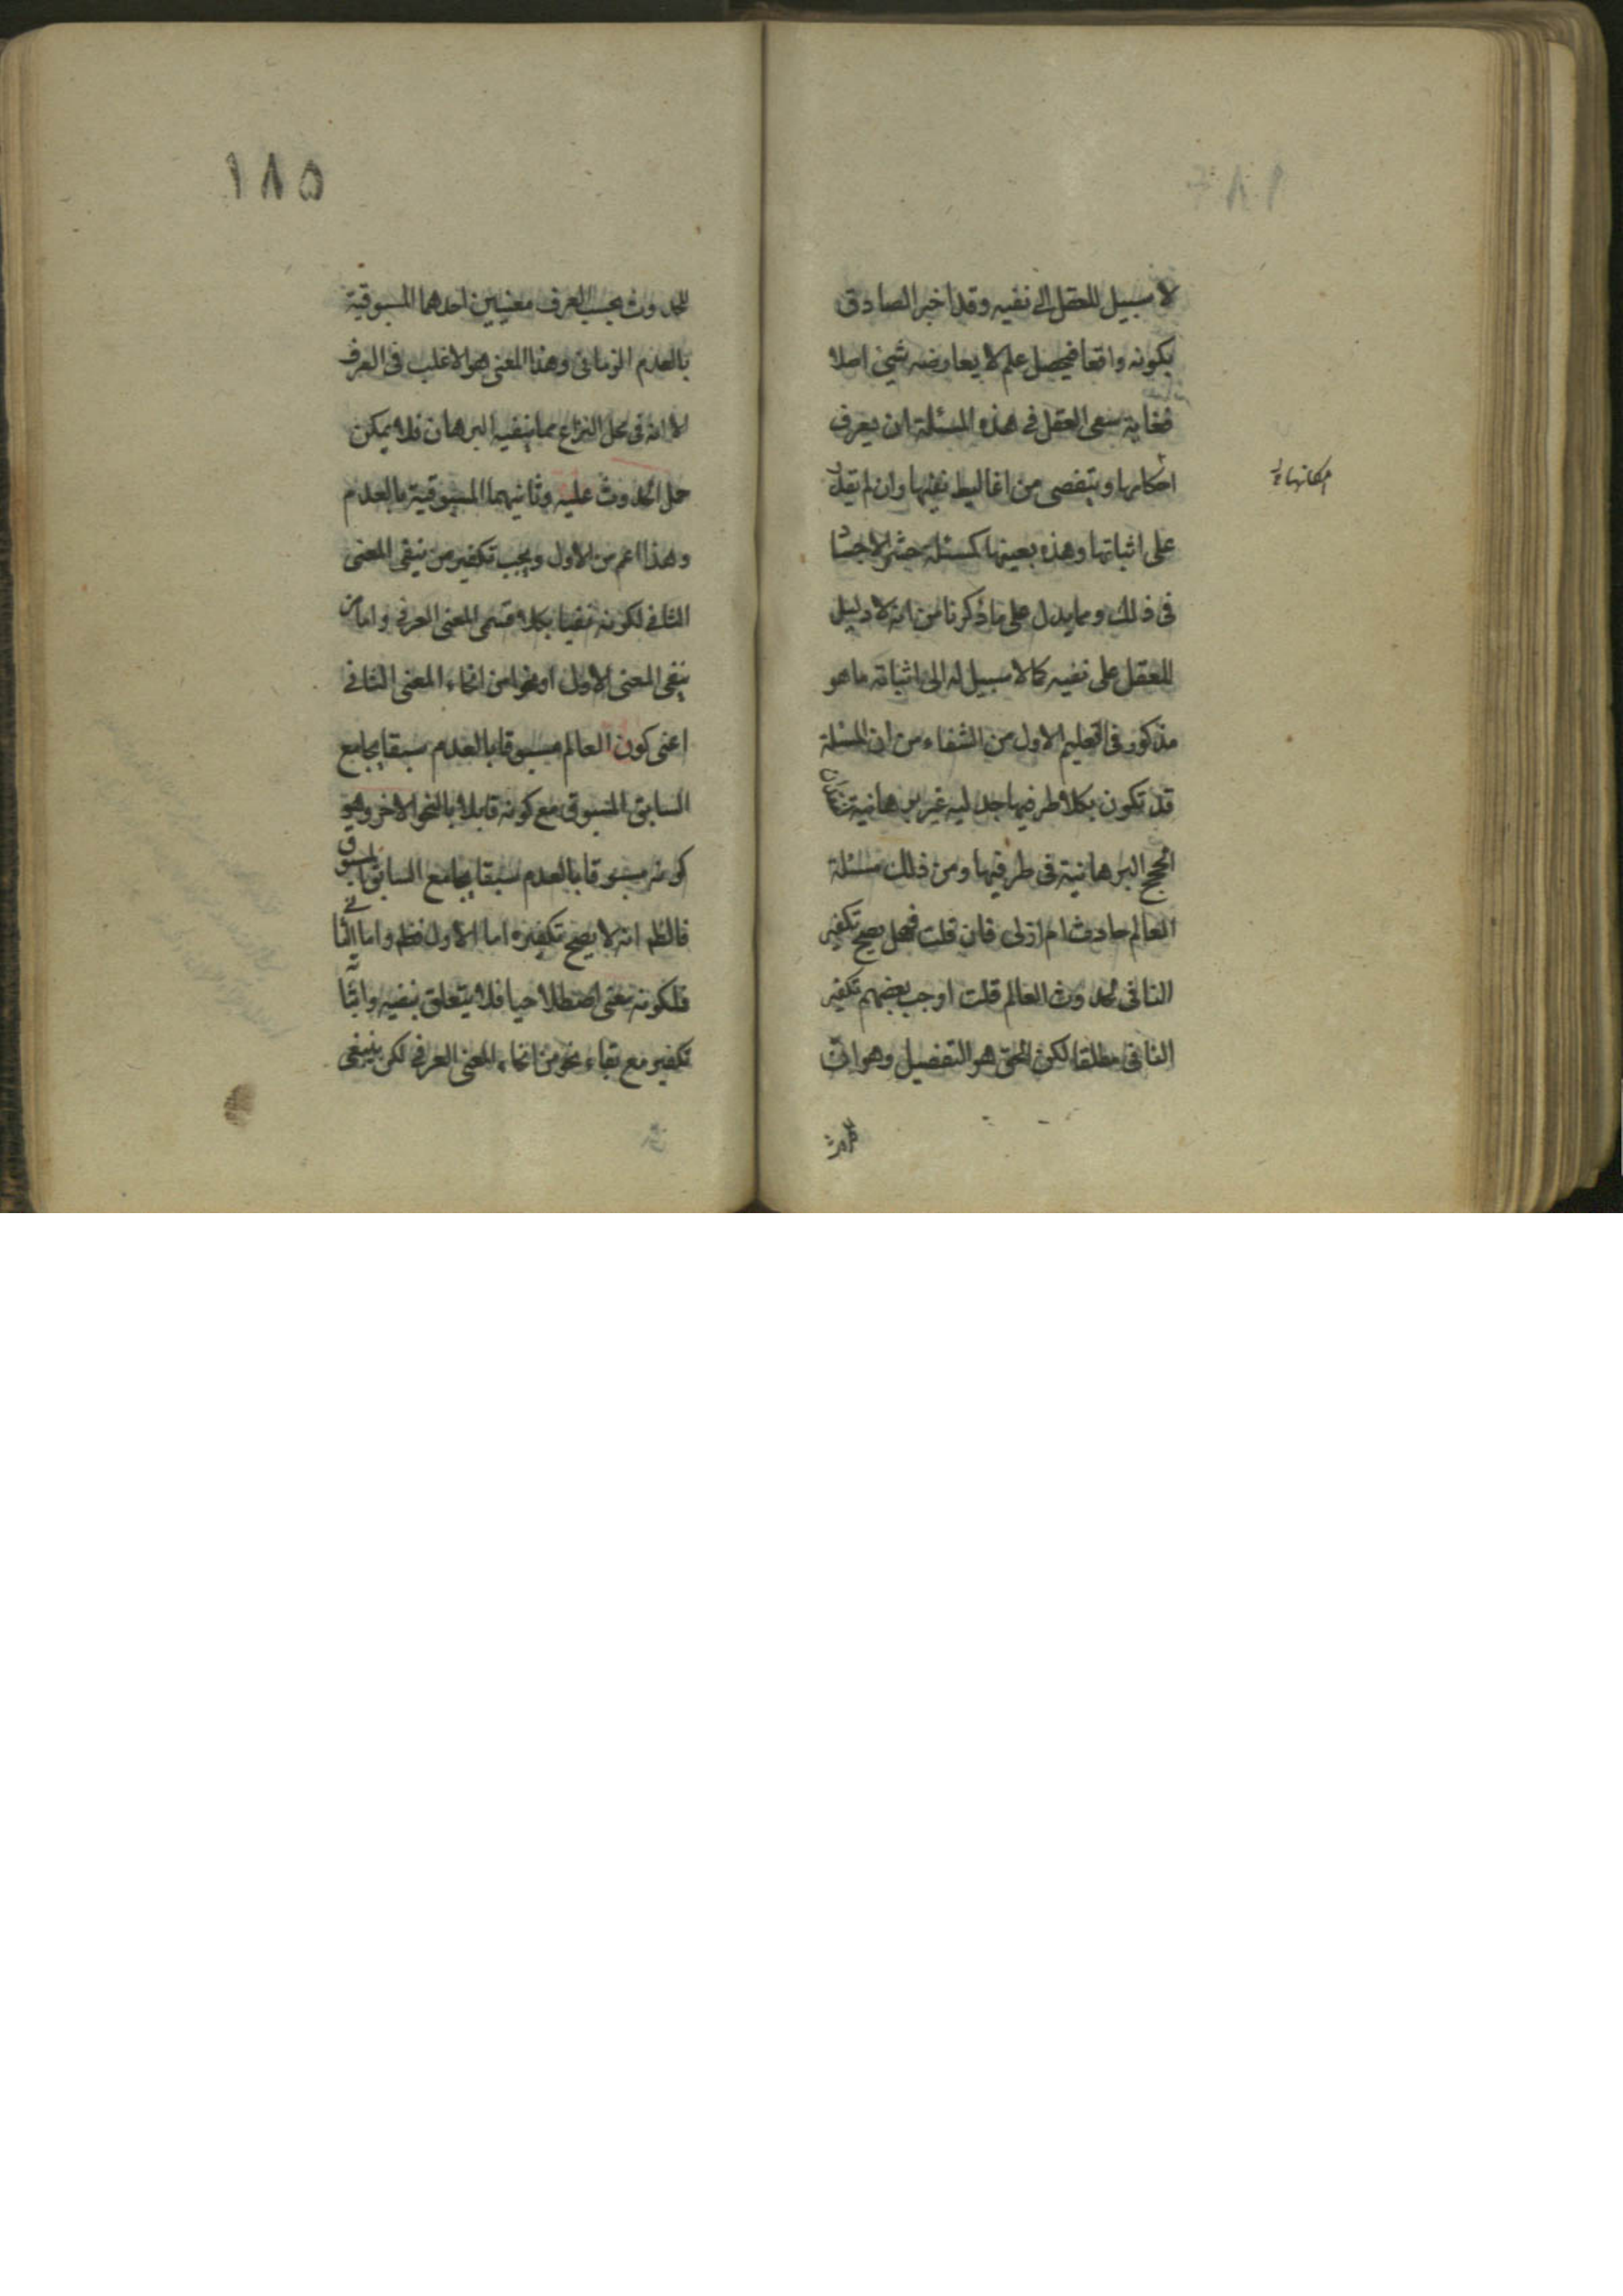 لا سبيل للعقل الى نفيه وقد اخبر الصادق
بكونه واقعا فيحصل علم لا يعارضه شئ اصلا
فغاية سعى العقل فى هذه المسئلة ان يعرف
احكامها ويتفصى من اغاليط نفيها وان لم يقدر
امكانها
على اثباتها وهذه بعينها كمسئلة حشر الاجساد
فى ذلك ومما يدل على ما ذكرنا من انه لا دليل
للعقل على نفيه كما لا سبيل له الى اثباته ما هو
مذكور فى التعليم الاول من الشفاء من ان المسئلة
قد تكون بكلا طرفيها جدليه غير برهانية
الحجج البرهانية فى طرفيها ومن ذلك مسئلة
العالم حادث ام ازلى فان قلت فهل يصح تكفير
النافى لحدوث العالم قلت اوجب بعضهم تكفير
النافى مطلقا لكن الحق هو التفصيل وهو ان
١٨٥
للحدوث بحسب العرف معنيين احدهما المسبوقية
بالعدم الزمانى وهذا المعنى هو الاغلب فى العرف
الا انه فى محل النزاع مما ينفيه البرهان فلا يمكن
حمل الحدوث عليه وثانيهما المسبوقية بالعدم
وهذا اعم من الاول ويجب تكفير من ينفى المعنى
الثانى لكونه نفيا بكلا قسمى المعنى العرفى واما من
ينفى المعنى الاول او نحوا من انحاء المعنى الثانى
اعنى كون العالم مسبوقا بالعدم سبقا يجامع
السابق المسبوق مع كونه قايلا بالنحو الاخر وهو
كونه مسبوقا بالعدم سبقا يجامع السابق المسبوق
فالظ انه لا يصح تكفيره اما الاول فظ واما الثانى
فلكونه معنى اصطلاحيا فلا يتعلق بنفيه واثباته
تكفير مع بقاء نحو من انحاء المعنى العرفى لكن ينبغى